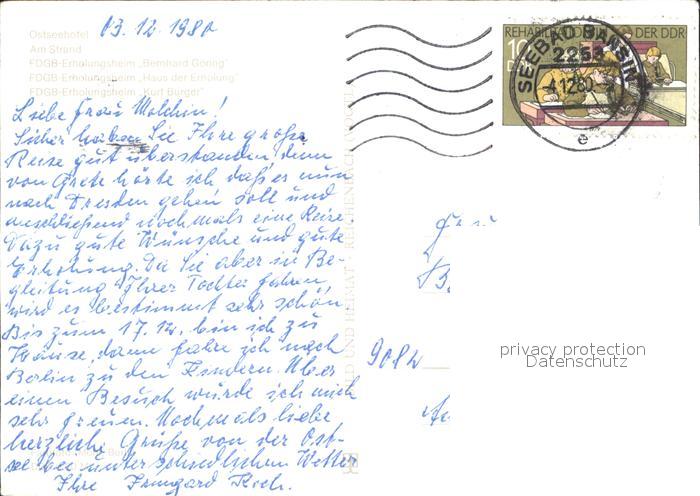 03.12.1980
Ostseehotel
Am Strand
FDGB-Erholungsheim „Bernhard Göring"
FDGB-Erholungsheim „Haus der Erholung"
FDGB-Erholungsheim „Kurt Bürger"
Liebe Frau Molchin!
Sicher haben Sie Ihre große
Reise gut überstanden, denn
von Grete hörte ich daß es nun
nach Dresden gehen soll und
anschließend nochmals eine Reise.
Dazu gute Wünsche und gute
Erholung. Da Sie aber in Be-
gleitung Ihrer Tochter fahren,
wird es bestimmt sehr schön.
Bis zum 17.12. bin ich zu
Hause, dann fahre ich nach
Berlin zu den Kindern. Über
einen Besuch würde ich mich
sehr freuen. Nochmals liebe
herzliche Grüße von der Ost-
see bei unterschiedlichem Wetter
Ihre Irmgard Koch.
BILD UND HEIMAT REICHENBACH
REHABIL
DER DDR
10
SEEBAD BANSIN
2255
-4.12.80
e
Frau
9082
privacy protection
Datenschutz